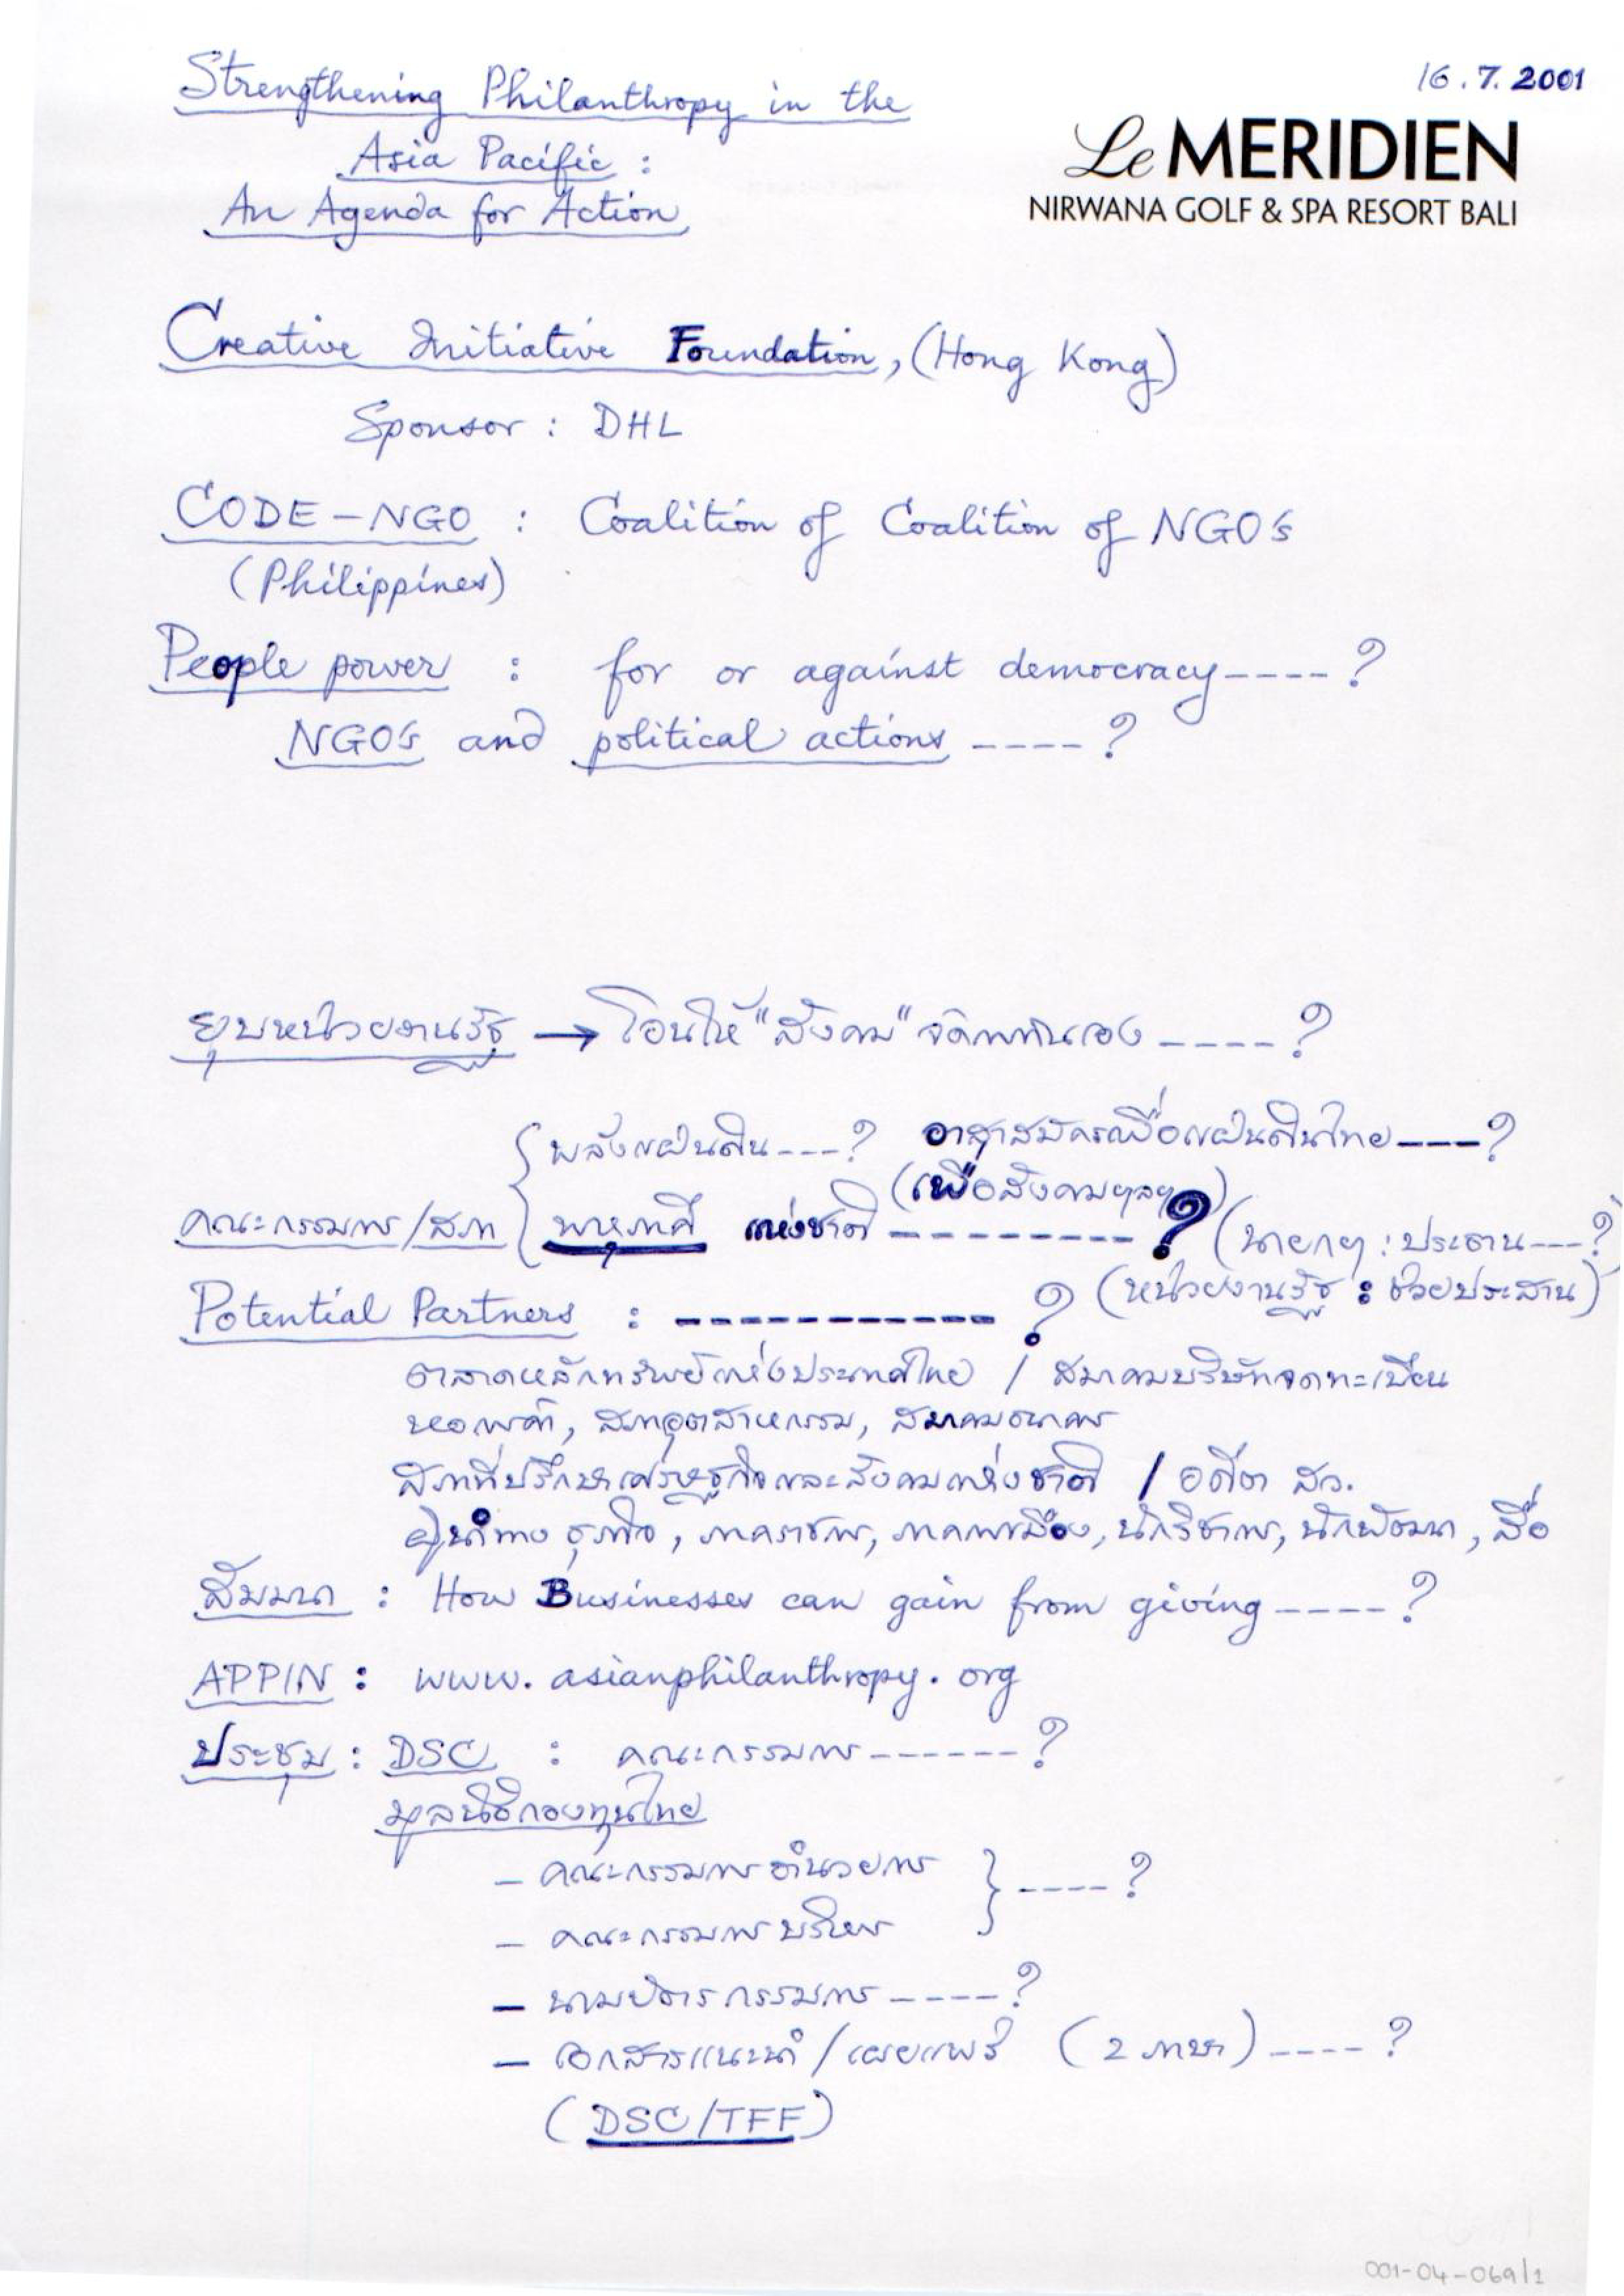 16.7.2001
Strengthening Philanthropy in the
Asia Pacific :
An Agenda for Action
Le MERIDIEN
NIRWANA GOLF & SPA RESORT BALI
Creative Initiative Foundation, (Hong Kong)
Sponsor : DHL
CODE-NGO : Coalition of Coalition of NGO's
(Philippines)
People power : for or against democracy ----?
NGO's and political actions ----?
ยุบหน่วยงานรัฐ → โอนให้ "สังคม" จัดการกันเอง ----?
พลังแผ่นดิน ---? อาสาสมัครเพื่อแผ่นดินไทย ---?
(เพื่อสังคมฯลฯ)
คณะกรรมการ/สภา { พหุภาคี แห่งชาติ --------? (นายกฯ : ประธาน ---?
(หน่วยงานรัฐ : ช่วยประสาน)
Potential Partners : -----------?
ตลาดหลักทรัพย์แห่งประเทศไทย / สมาคมบริษัทจดทะเบียน
หอการค้า, สภาอุตสาหกรรม, สมาคมธนาคาร
สภาที่ปรึกษาเศรษฐกิจและสังคมแห่งชาติ / อดีต สว.
ผู้นำทาง ธุรกิจ, ภาคราชการ, ภาคการเมือง, นักวิชาการ, นักพัฒนา, สื่อ
สัมมนา : How Businesses can gain from giving ----?
APPIN : www.asianphilanthropy.org
ประชุม : DSC : คณะกรรมการ ------?
มูลนิธิกองทุนไทย
- คณะกรรมการอำนวยการ } ----?
- คณะกรรมการบริหาร
- นามบัตรกรรมการ ----?
- เอกสารแนะนำ/เผยแพร่ (2 ภาษา) ----?
(DSC/TFF)
001-04-069/1